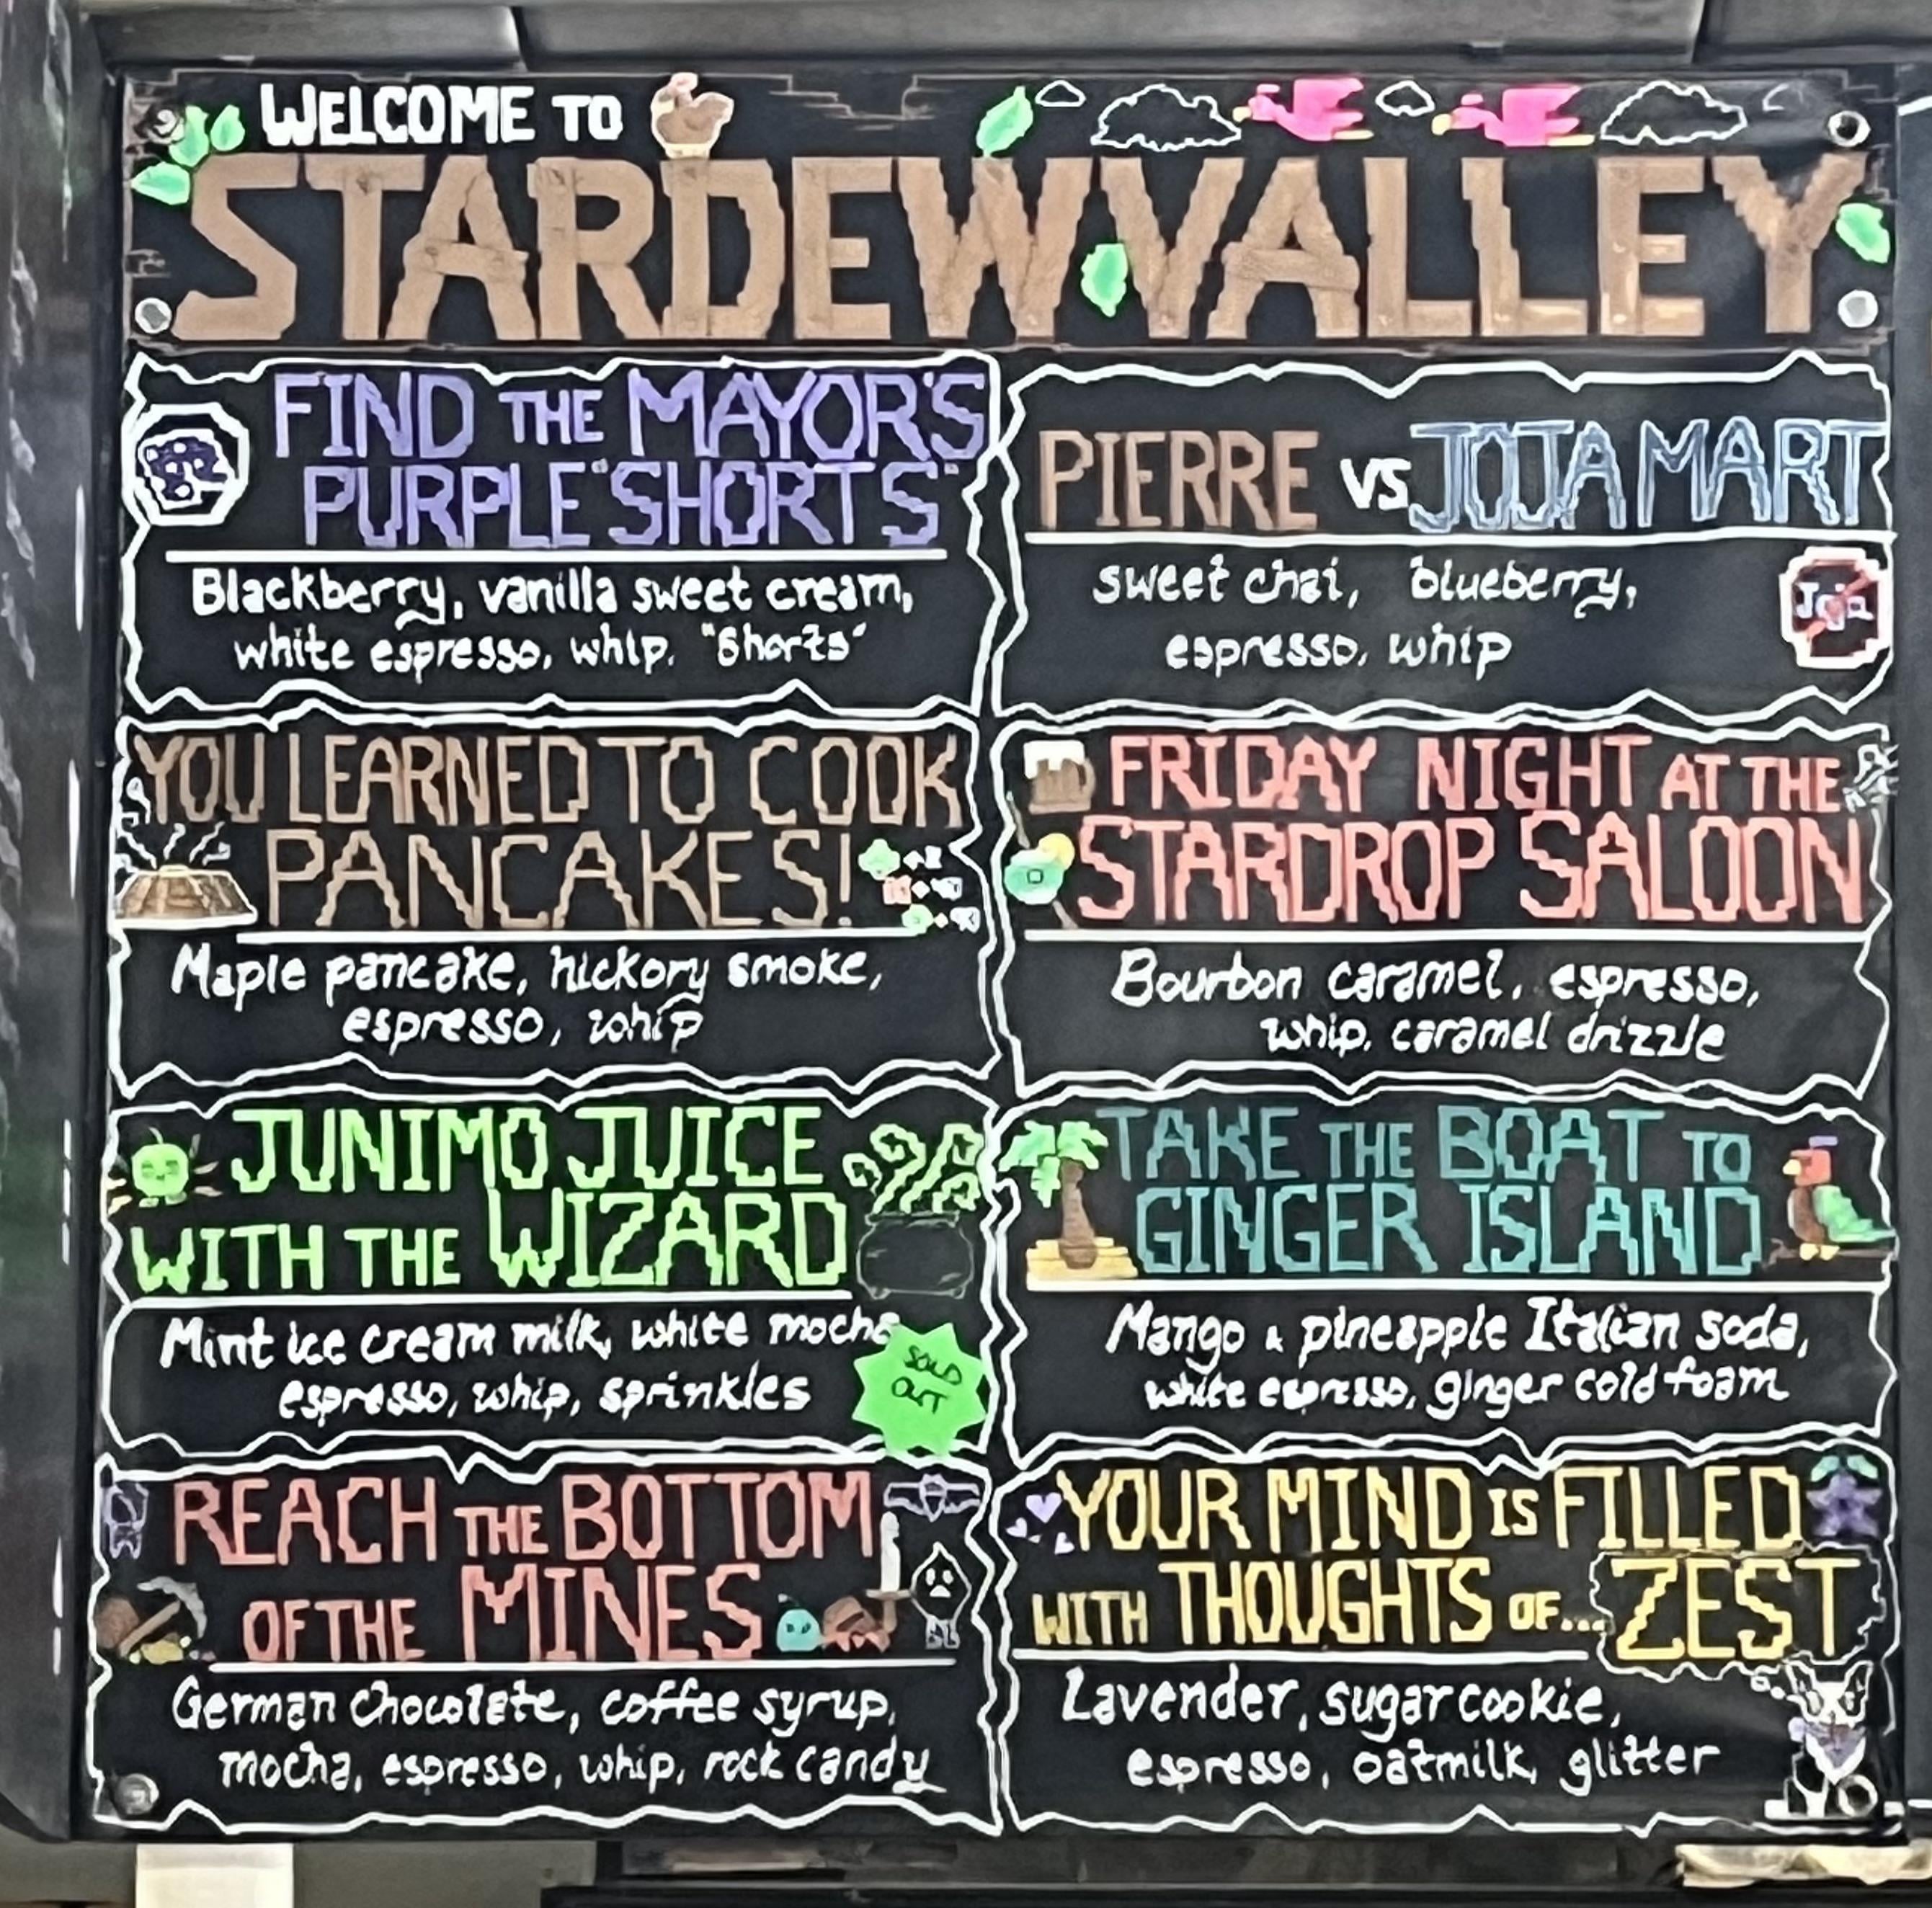 WELCOME TO
STARDEW VALLEY
FIND THE MAYOR'S
PURPLE "SHORTS"
Blackberry, vanilla sweet cream,
white espresso, whip, "Shorts"
PIERRE VS JOJA MART
sweet chai, blueberry,
espresso, whip
Joja
YOU LEARNED TO COOK
PANCAKES!
Maple pancake, hickory smoke,
espresso, whip
FRIDAY NIGHT AT THE
STARDROP SALOON
Bourbon caramel, espresso,
whip, caramel drizzle
JUNIMO JUICE
WITH THE WIZARD
Mint ice cream milk, white mocha
espresso, whip, sprinkles
SOLD
OUT
TAKE THE BOAT TO
GINGER ISLAND
Mango & pineapple Italian soda,
white espresso, ginger cold foam
REACH THE BOTTOM
OF THE MINES
German Chocolate, coffee syrup,
mocha, espresso, whip, rock candy
YOUR MIND IS FILLED
WITH THOUGHTS OF... ZEST
Lavender, sugar cookie,
espresso, oatmilk, glitter